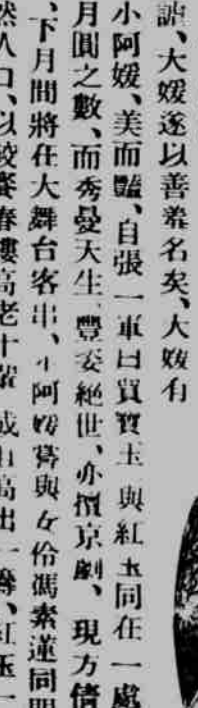 詣、大媛遂以善養名矣、大媛有
小阿媛、美而豔、自張一軍曰賈寶玉與紅玉同在一處
月圓之數、而秀曼天生、豐姿絕世、亦擅京劇、現方倩
、下月間將在大舞台客串、小阿媛嘗與女伶馮素蓮同
然人口、以較餐春樓高老十輩
高出一籌、紅玉一